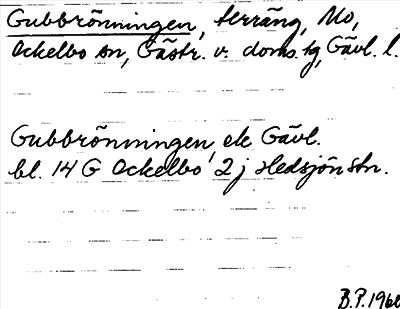 Gubbrönningen, terräng, Mo,
Ockelbo sn, Gästr. v. doms. tg, Gävl. l.
Gubbrönningen, ek Gävl.
bl. 14 G Ockelbo 2 j Hedsjön stn.
B.P. 1960